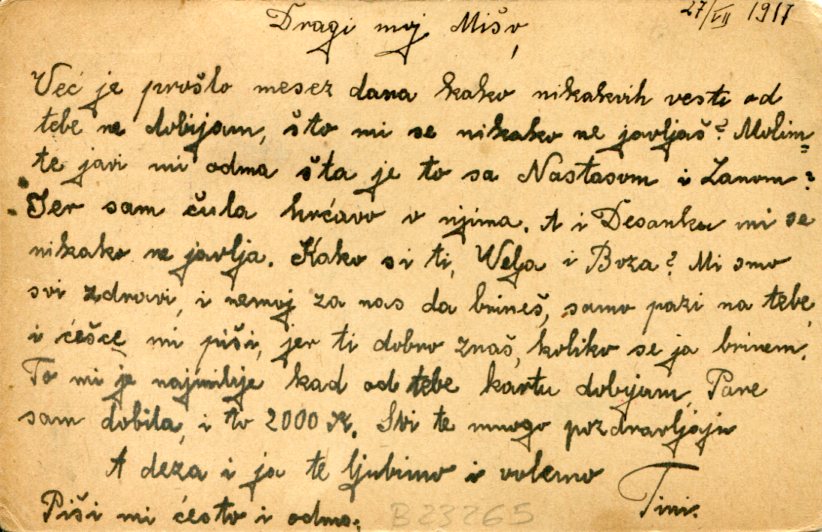 27/VII 1917
Dragi moj Mišo,
Već je prošlo mesez dana kako nikakvih vesti od
tebe ne dobijam, što mi se nikako ne javljaš? Molim
te javi mi odma šta je to sa Nastasom i Lanom?
Jer sam čula hrđavo o njima. A i Desanka mi se
nikako ne javlja. Kako si ti, Welja i Boza? Mi smo
svi zdravi, i nemoj za nas da brineš, samo pazi na tebe,
i ćešće mi piši, jer ti dobro znaš, koliko se ja brinem.
To mi je najmilije kad od tebe kartu dobijam. Pare
sam dobila, i to 2000 K. Svi te mnogo pozdravljaju
A deza i ja te ljubimo i volemo
Tini.
Piši mi ćesto i odma.
B23265